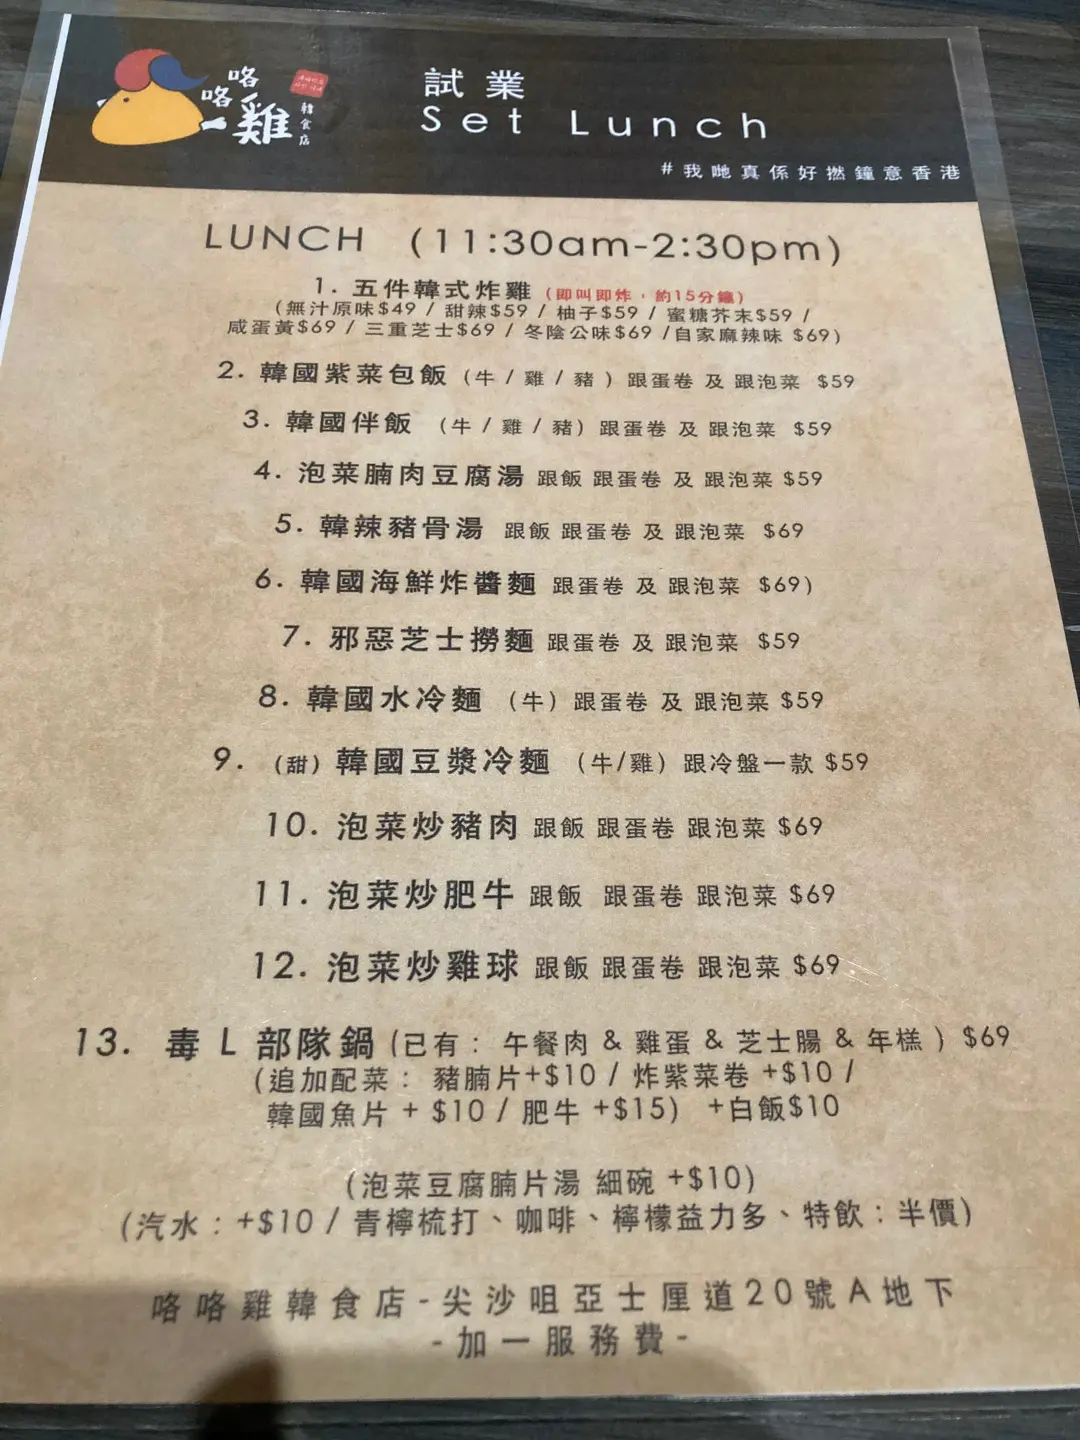 咯咯雞
韓食店
試業
Set Lunch
#我哋真係好撚鐘意香港
LUNCH (11:30am-2:30pm)
1. 五件韓式炸雞 (即叫即炸，約15分鐘)
(無汁原味$49 / 甜辣$59 / 柚子$59 / 蜜糖芥末$59 /
咸蛋黃$69 / 三重芝士$69 / 冬陰公味$69 /自家麻辣味 $69)
2. 韓國紫菜包飯 (牛 / 雞 / 豬 ) 跟蛋卷 及 跟泡菜 $59
3. 韓國伴飯 (牛 / 雞 / 豬) 跟蛋卷 及 跟泡菜 $59
4. 泡菜腩肉豆腐湯 跟飯 跟蛋卷 及 跟泡菜 $59
5. 韓辣豬骨湯 跟飯 跟蛋卷 及 跟泡菜 $69
6. 韓國海鮮炸醬麵 跟蛋卷 及 跟泡菜 $69)
7. 邪惡芝士撈麵 跟蛋卷 及 跟泡菜 $59
8. 韓國水冷麵 (牛) 跟蛋卷 及 跟泡菜 $59
9. (甜) 韓國豆漿冷麵 (牛/雞) 跟冷盤一款 $59
10. 泡菜炒豬肉 跟飯 跟蛋卷 跟泡菜 $69
11. 泡菜炒肥牛 跟飯 跟蛋卷 跟泡菜 $69
12. 泡菜炒雞球 跟飯 跟蛋卷 跟泡菜 $69
13. 毒 L 部隊鍋 (已有： 午餐肉 & 雞蛋 & 芝士腸 & 年糕 ) $69
(追加配菜： 豬腩片+$10 / 炸紫菜卷 +$10 /
韓國魚片 + $10 / 肥牛 +$15) +白飯$10
(泡菜豆腐腩片湯 細碗 +$10)
(汽水：+$10 / 青檸梳打、咖啡、檸檬益力多、特飲：半價)
咯咯雞韓食店-尖沙咀亞士厘道20號A地下
-加一服務費-